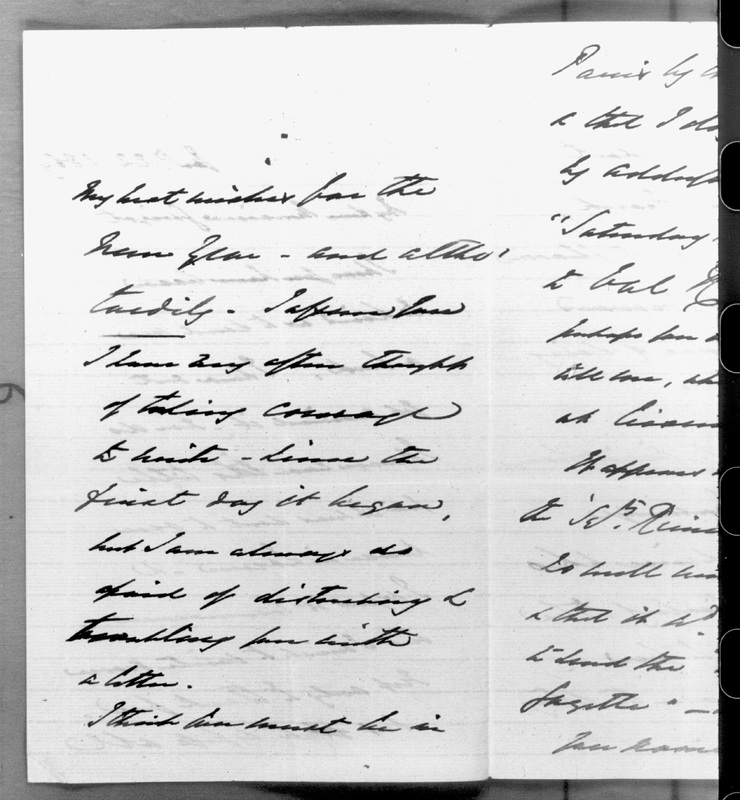 My best wishes for the
New Year - and altho'
tardily. I assure you
I have very often thought
of taking courage
to write - since the
first day it began,
but I am always so
afraid of disturbing &
troubling you with
a letter.
I think you must be in
Paris by
& that I do
by
"Saturday
to
perhaps you
tell me,
at
It appears
the
so well
& that it wd
to send the
Gazette" -
You know